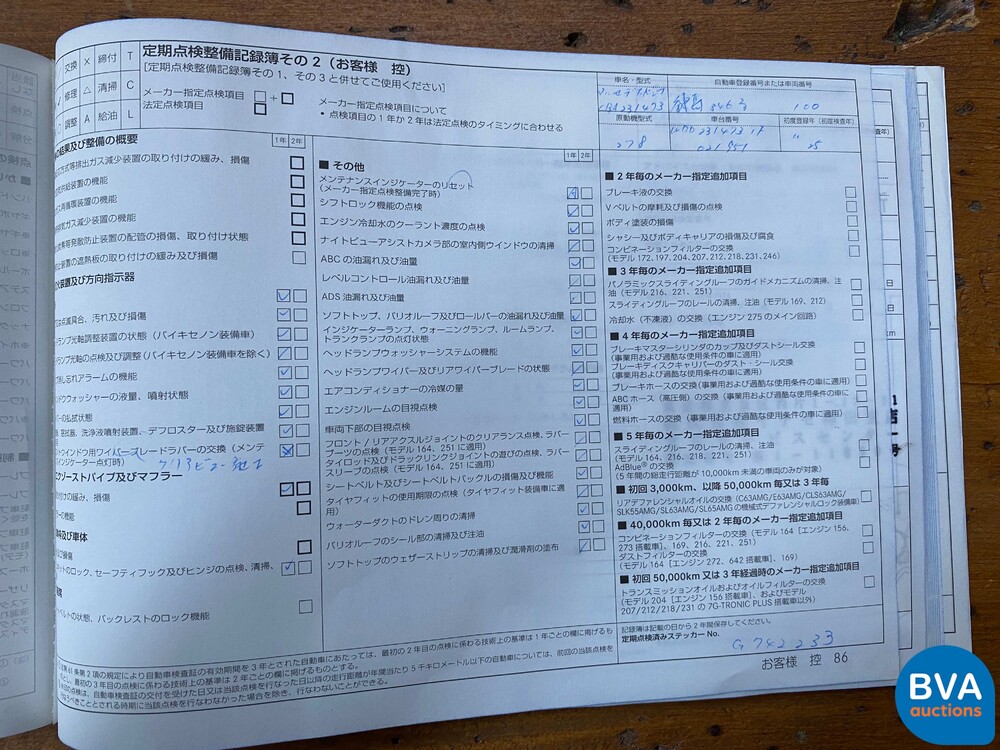 定期点検整備記録簿その2(お客様 控)
[定期点検整備記録簿その1、その3と併せてご使用ください]
交換 × 締付 T
修理 △ 清掃 C
調整 A 給油 L
メーカー指定点検項目 □+□
法定点検項目 □
メーカー指定点検項目について
• 点検項目の1年か2年は法定点検のタイミングに合わせる
車名・型式
自動車登録番号または車両番号
346
100
原動機型式
車台番号
初度登録年(初度検査年)
278
021951
25
の結果及び整備の概要
1年 2年
方式等排出ガス減少装置の取り付けの緩み、損傷
供給装置の機能
再循環装置の機能
ガス減少装置の機能
等発散防止装置の配管の損傷、取り付け状態
装置の遮熱板の取り付けの緩み及び損傷
装置及び方向指示器
点滅具合、汚れ及び損傷
ランプ光軸調整装置の状態(バイキセノン装備車)
ランプ光軸の点検及び調整(バイキセノン装備車を除く)
消し忘れアラームの機能
ウォッシャーの液量、噴射状態
の払拭状態
払拭器、洗浄液噴射装置、デフロスター及び施錠装置
ウインドウ用ワイパーブレードラバーの交換(メンテ
インジケーター点灯時)
エグゾーストパイプ及びマフラー
付けの緩み、損傷
の機能
及び車体
損傷
ットのロック、セーフティフック及びヒンジの点検、清掃、
ベルトの状態、バックレストのロック機能
■ その他
1年 2年
メンテナンスインジケーターのリセット
(メーカー指定点検整備完了時)
シフトロック機能の点検
エンジン冷却水のクーラント濃度の点検
ナイトビューアシストカメラ部の室内側ウインドウの清掃
ABCの油漏れ及び油量
レベルコントロール油漏れ及び油量
ADS油漏れ及び油量
ソフトトップ、バリオルーフ及びロールバーの油漏れ及び油量
インジケーターランプ、ウォーニングランプ、ルームランプ、
トランクランプの点灯状態
ヘッドランプウォッシャーシステムの機能
ヘッドランプワイパー及びリアワイパーブレードの状態
エアコンディショナーの冷媒の量
エンジンルームの目視点検
車両下部の目視点検
フロント/リアアクスルジョイントのクリアランス点検、ラバー
ブーツの点検(モデル164、251に適用)
タイロッド及びドラックリンクジョイントの遊びの点検、ラバー
スリーブの点検(モデル164、251に適用)
シートベルト及びシートベルトバックルの損傷及び機能
タイヤフィットの使用期限の点検(タイヤフィット装備車に適
用)
ウォーターダクトのドレン周りの清掃
バリオルーフのシール部の清掃及び注油
ソフトトップのウェザーストリップの清掃及び潤滑剤の塗布
■ 2年毎のメーカー指定追加項目
ブレーキ液の交換
Vベルトの摩耗及び損傷の点検
ボディ塗装の損傷
シャシー及びボディキャリアの損傷及び腐食
コンビネーションフィルターの交換
(モデル172、197、204、207、212、218、231、246)
■ 3年毎のメーカー指定追加項目
パノラミックスライディングルーフのガイドメカニズムの清掃、注
油(モデル216、221、251)
スライディングルーフのレールの清掃、注油(モデル169、212)
冷却水(不凍液)の交換(エンジン275のメイン回路)
■ 4年毎のメーカー指定追加項目
ブレーキマスターシリンダのカップ及びダストシール交換
(事業用および過酷な使用条件の車に適用)
ブレーキディスクキャリパーのダスト・シール交換
(事業用および過酷な使用条件の車に適用)
ブレーキホースの交換(事業用および過酷な使用条件の車に適用)
ABCホース(高圧側)の交換(事業用および過酷な使用条件の車に
適用)
燃料ホースの交換(事業用および過酷な使用条件の車に適用)
■ 5年毎のメーカー指定追加項目
スライディングルーフのレールの清掃、注油
(モデル164、216、218、221、251)
AdBlue®の交換
(5年間の総走行距離が10,000km未満の車両のみが対象)
■ 初回3,000km、以降50,000km毎又は3年毎
リアデファレンシャルオイルの交換(C63AMG/E63AMG/CLS63AMG/
SLK55AMG/SL63AMG/SL65AMGの機械式デファレンシャルロック装備車)
■ 40,000km毎又は2年毎のメーカー指定追加項目
コンビネーションフィルターの交換(モデル164[エンジン156、
273搭載車]、169、216、221、251)
ダストフィルターの交換
(モデル164[エンジン272、642搭載車]、169)
■ 初回50,000km又は3年経過時のメーカー指定追加項目
トランスミッションオイルおよびオイルフィルターの交換
(モデル204[エンジン156搭載車]、およびモデル
207/212/218/231の7G-TRONIC PLUS搭載車以外)
記録簿は記載の日から2年間保存してください。
定期点検済みステッカーNo.
G742233
第41条第2項の規定により自動車検査証の有効期間を3年とされた自動車にあたっては、最初の2年目の点検に係る技術上の基準は1年ごとの欄に掲げるも
とし、最初の3年目の点検に係わる技術上の基準は2年ごとの欄に掲げるものとする。
お客様 控 86
BVA
auctions